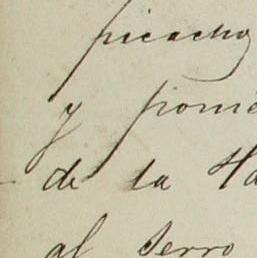 picacho
y pome
de la Ha
al serro